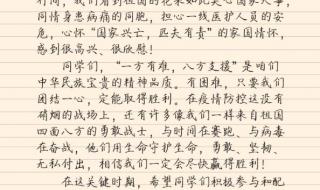 行间，我们看到祖国的花朵如此关心国家大事，
同情身患病痛的同胞，担心一线医护人员的安
危，心怀“国家兴亡，匹夫有责”的家国情怀，
感到很高兴、很欣慰！
同学们，“一方有难，八方支援”是咱们
中华民族宝贵的精神品质。有困难，只要我们
团结一心，定能取得胜利。在疫情防控这没有
硝烟的战场上，还有许多像我们一样来自祖国
四面八方的勇敢战士，与时间在赛跑、与病毒
在奋战，他们用生命守护生命，勇敢、坚韧、
无私付出，相信我们一定会尽快赢得胜利！
在这关键时期，希望同学们积极参与和配